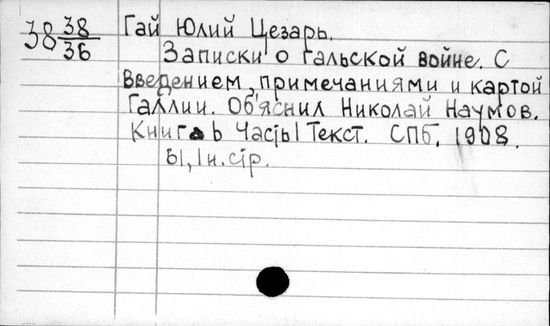 38 38/36 Гай Юлий Цезарь.
Записки о гальской войне. С
введением, примечаниями и картой
Галлии. Об'яснил Николай Наумов.
Книга b Часть I Текст. СПб. 1908.
61, I н. стр.